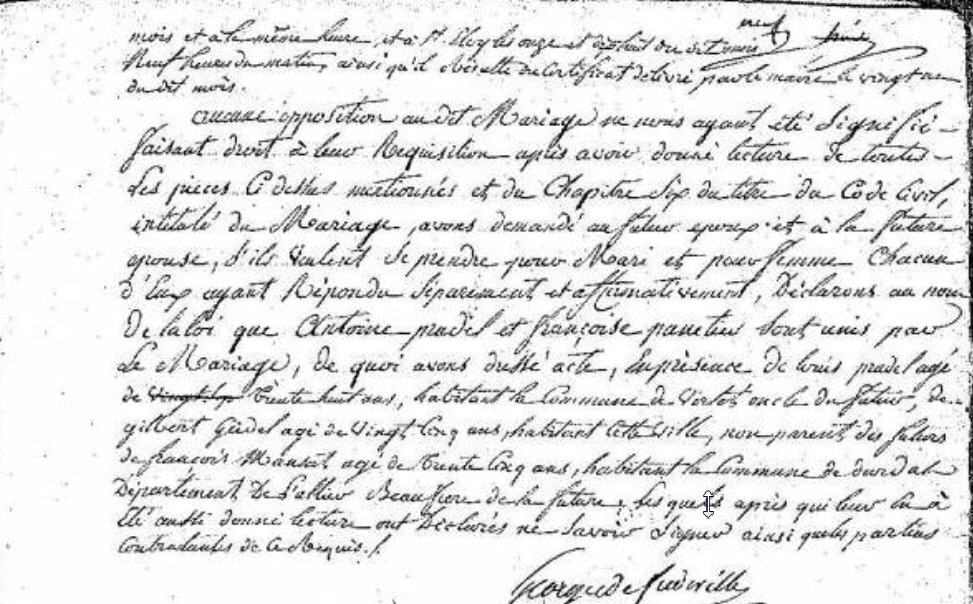 mois et à la même heure, et à St. Eloy les onze et dixhuit du dit mois
Neuf heures du matin, ainsi qu'il Résulte du Certificat delivré par le maire le vingt
du dit mois.
aucune opposition au dit Mariage ne nous ayant été Signifié
faisant droit à leur Requisition après avoir donné lecture de toutes
Les pieces Ci dessus mentionnés et du Chapitre Six du titre du Code Civil,
intitulé du Mariage, avons demandé au futur epoux et à la future
epouse, s'ils Veulent Se prendre pour Mari et pour femme Chacun
d'Eux ayant Répondu Séparément et affirmativement, Déclarons au nom
De la loi que Antoine pradel et françoise panetier Sont unis par
Le Mariage, de quoi avons dressé acte, En présence de louis pradel agé
de trente huit ans, habitant la Commune de oncle du futur, de
gilbert agé de Vingt Cinq ans, habitant Cette Ville, non parent des futurs
de françois Mansat agé de trente Cinq ans, habitant la Commune de
Département De L'allier Beaufrere de la future, Lesquels après qu'il leur en à
été aussi donné lecture ont Déclarés ne Savoir Signer ainsi que les parties
Contractantes de Ce Requis ./.